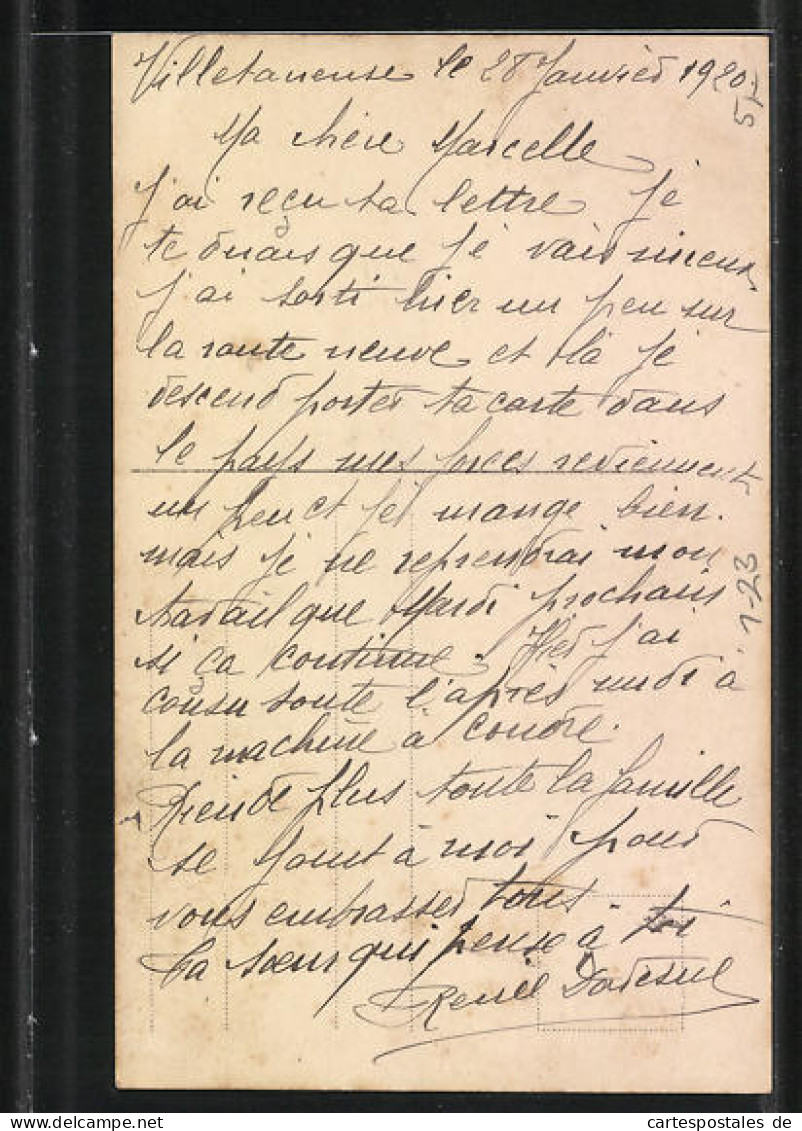 Villetaneuse le 28 Janvier 1920
Ma chère Marcelle
J'ai reçu ta lettre je
te dirais que je vais mieux
J'ai sorti hier un peu sur
la route neuve et là je
descend porter ta carte dans
le pays mes forces reviennent
un peu et je mange bien.
mais je ne reprendrai mon
travail que Mardi prochain
si ça continue. Hier j'ai
cousu toute l'après midi à
la machine à coudre.
Rien de plus toute la famille
se joint à moi pour
vous embrasser tous.
Ta soeur qui pense à toi
1-23
cartespostales de